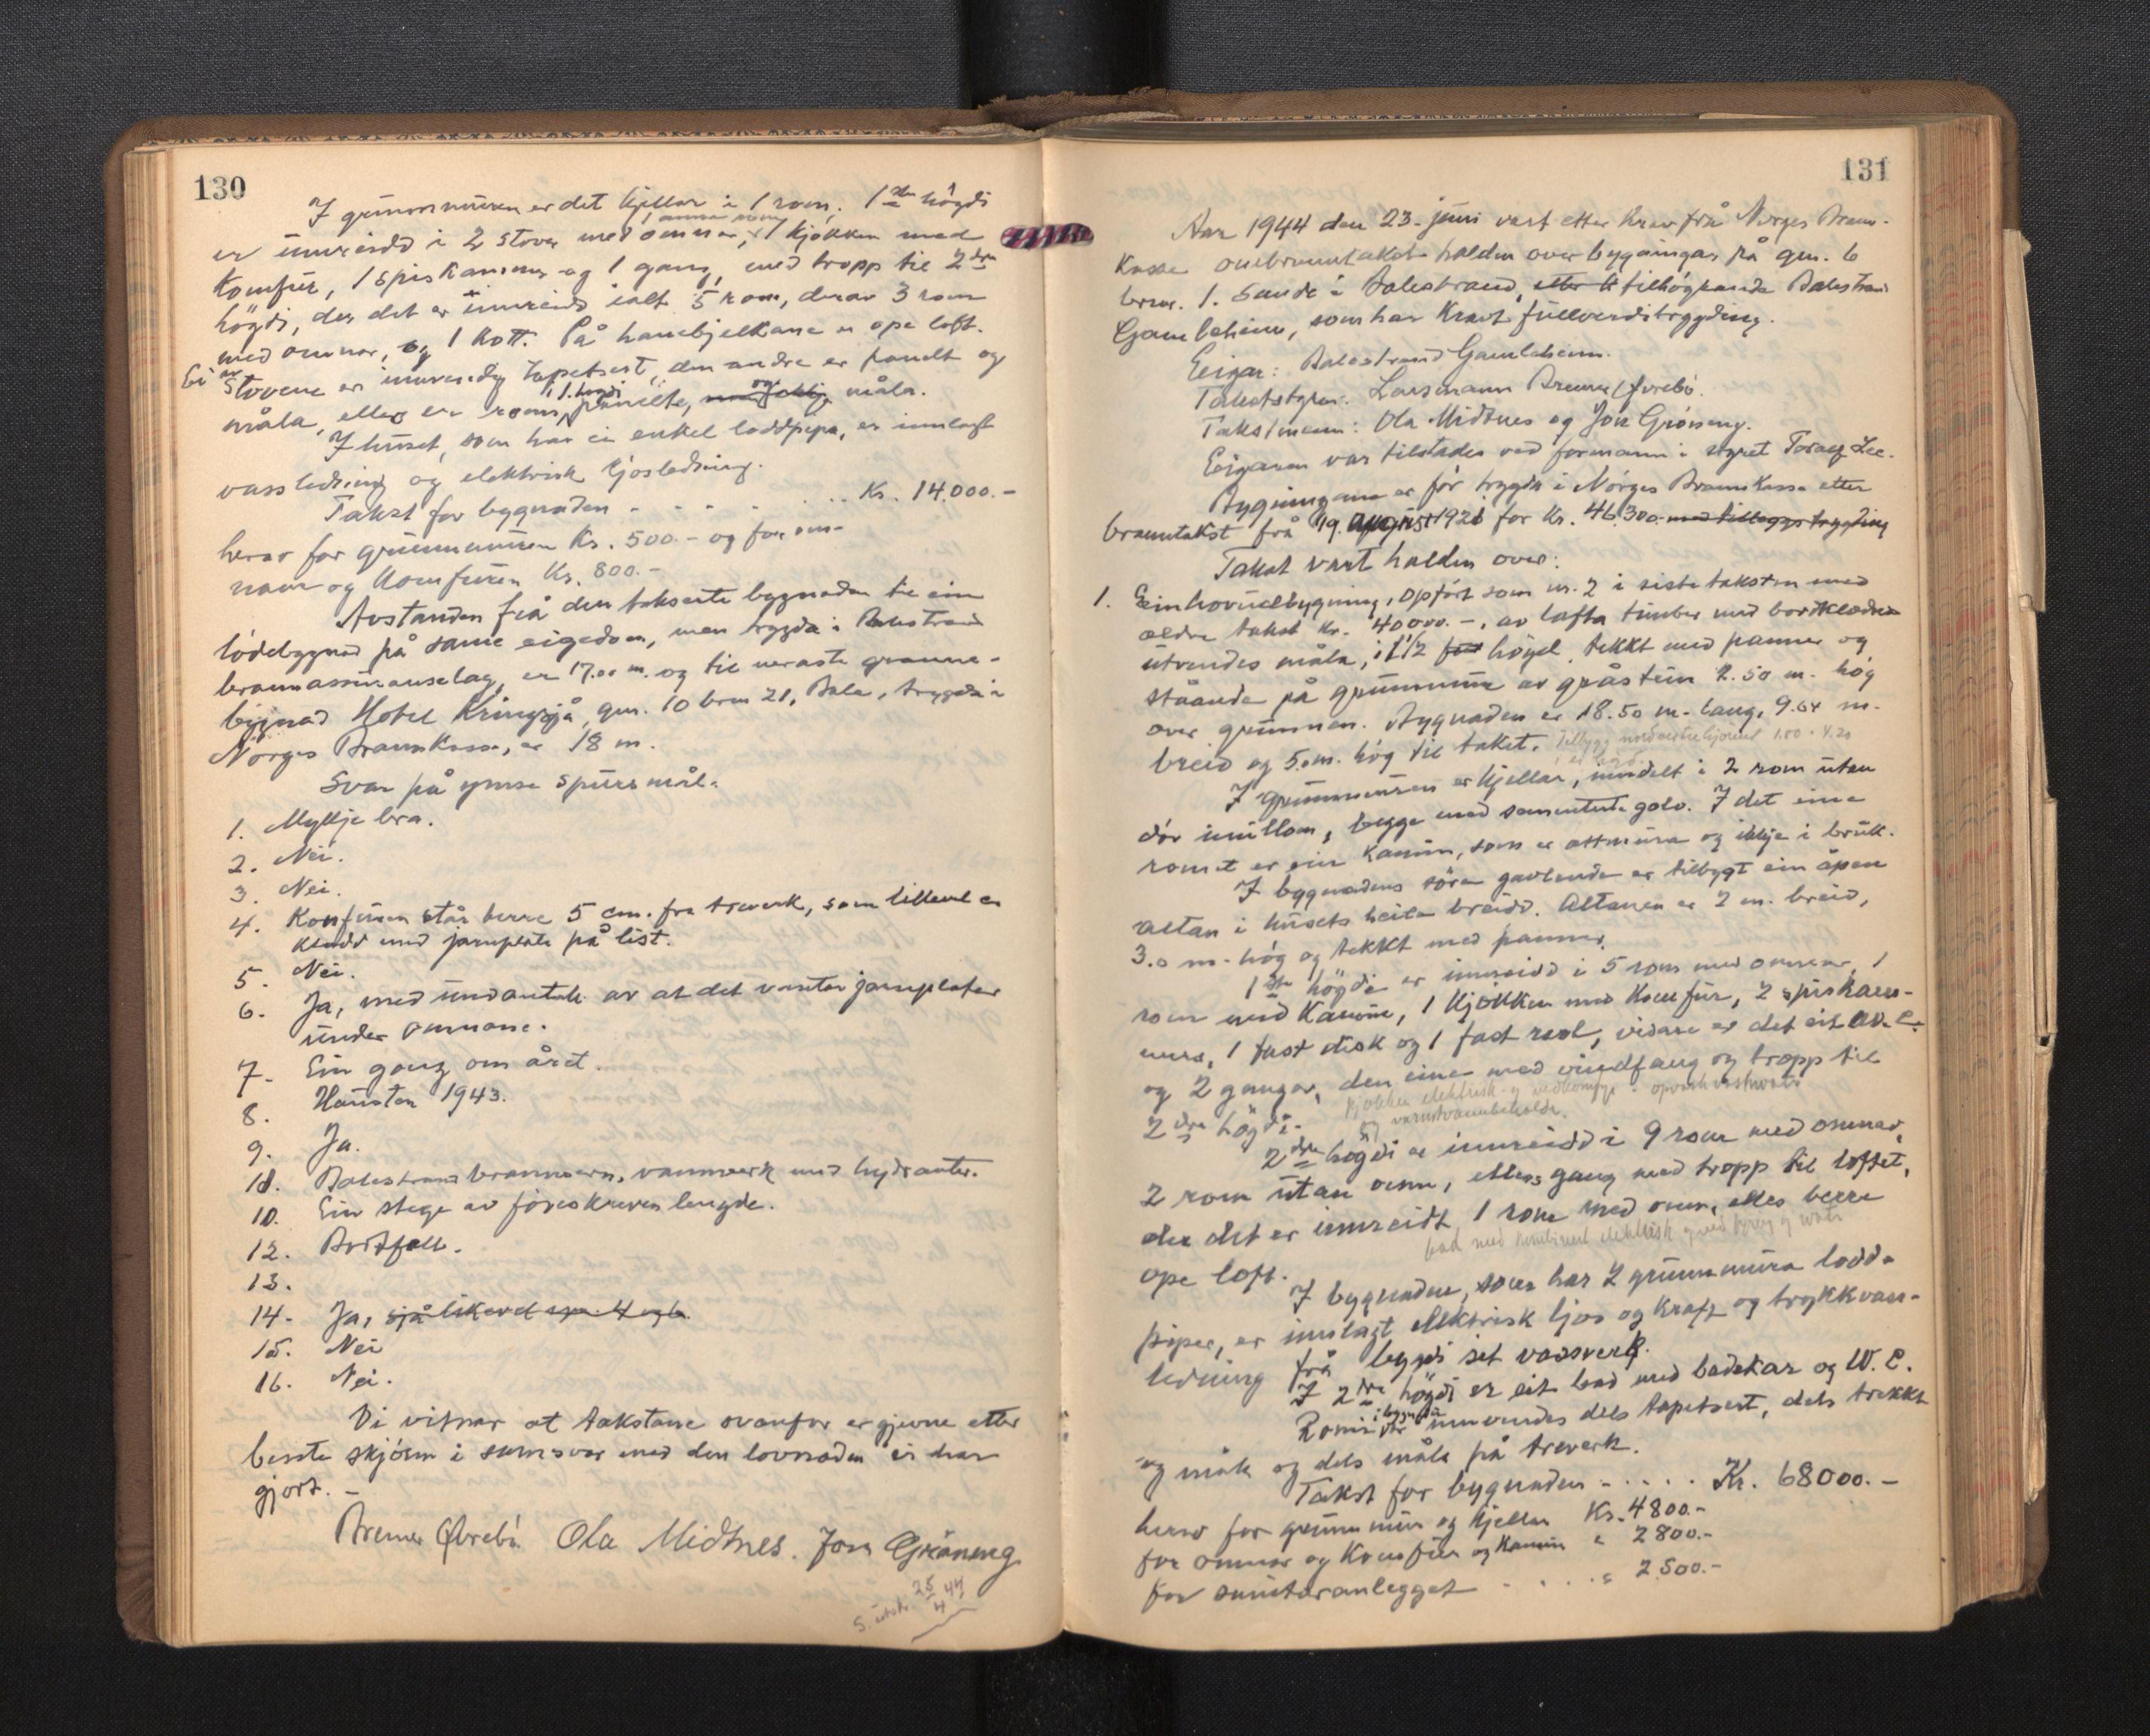 130
I grunnmuren er det kjellar i 1 rom. 1ste högdi
er innreidd i 2 stover med omnar, 1 anna rom, 1 kjökken med
komfur, 1 spiskammer og 1 gang, med tropp til 2dre
högdi, der det er innreidd ialt 5 rom, derav 3 rom
med omnar, og 1 kott. På hanebjelkane er ope loft.
Ei av stovene er innvendig tapetsert, den andre er panelt og
måla, elles er romi i 1. högdi panelte, og måla.
I huset, som har ei enkel loddpipa, er innlagt
vassledning og elektrisk ljosledning.
Takst for bygnaden - - - - ... Kr. 14.000.-
herav for grunnmuren Kr. 500.- og for om-
nane og komfuren Kr. 800.-
Avstanden frå den takserte bygnaden til ein
lödebygnad på same eigedom, men trygda i Balestrand
brannassuranselag, er 17.00 m. og til næraste granne-
bygnad Hotel Kringsjå, gnr. 10 brnr 21, Bale, trygda i
Norges Brannkasse, er 18 m.
Svar på ymse spursmål:
1. Mykje bra.
2. Nei.
3. Nei.
4. Komfuren står berre 5 cm. fra treverk, som likevel er
kledd med jarnplate på list.
5. Nei.
6. Ja, med undantak av at det vantar jarnplater
under omnane.
7. Ein gong om året.
8. Hausten 1943.
9. Ja.
10. Balestrand brannvern, vannverk med hydranter.
10. Ein stege av föreskreven lengde.
12. Bortfell.
13.
14. Ja, sjå likevel spm. 4 og 6.
15. Nei
16. Nei.
Vi vitnar at takstane ovanfor er gjevne etter
beste skjönn i samsvar med den lovnaden vi har
gjort. -
Bremer Øvrebö. Ola Midtnes. Jon Gröneng
S. utskr. 25/4 44
131
Aar 1944 den 23. juni vart etter krav frå Norges Brann-
kasse omebranntakst halden over bygningar på gnr. 6
brnr. 1. Sande i Balestrand, tilhöyrande Balestrand
Gamleheim, som har kravt fullverditrygding.
Eigar: Balestrand Gamleheim.
Takststyrar: Lensmann Bremer Øvrebö.
Takstmenn: Ola Midtnes og Jon Gröneng.
Eigaren var tilstades ved formann i styret Toralf Lee.
Bygningane er för trygda i Norges Brannkasse etter
branntakst frå 19. august 1921 for Kr. 46.300.- med tilleggstrygding
Takst vart halden over:
1. Ein hovudbygning, oppfört som nr. 2 i siste taksten med
eldre takst kr. 40000.-, av lafta timber med bordklædnad
utvendes måla, i 1 1/2 högd, tekkt med panner og
ståande på grunnmur av gråstein 2.50 m. hög
over grunnen. Bygnaden er 18.50 m. lang, 9.64 m.
breid og 5.0 m. hög til taket. Tilbygg nordvestre hjørnet 1.80 . 4.20
I grunnmuren er kjellar, inndelt i 2 rom utan
dör imillom, begge med sementerte golv. I det eine
romet er ein kamin, som er attmura og ikkje i bruk.
I bygnadens söre gavlende er tilbygt ein åpen
altan i husets heile breidd. Altanen er 2 m. breid,
3.0 m. hög og tekkt med panner.
1ste högdi er innreidd i 5 rom med omnar, 1
rom med kamin, 1 kjökken med komfur, 2 spiskam-
mers, 1 fast disk og 1 fast reol, vidare er det eit W.C.
og 2 gangar, den eine med vindfang og tropp til
2dre högdi. Kjøkken elektrisk og vedkomfyr
og varmtvannbeholder.
2dre högdi er innreidd i 9 rom med omnar,
2 rom utan omn, elles gang med tropp til loftet,
der det er innreidt 1 rom med omn, elles berre
ope loft.
I bygnaden, som har 2 grunnmura lodd-
piper, er innlagt elektrisk ljos og kraft og trykkvass-
ledning frå bygdi sit vassverk.
I 2dre högdi er eit bad med badekar og W.C.
Romi i bygnaden er innvendes dels tapetsert, dels trekkt
og måla og dels måla på treverk.
Takst for bygnaden - . . . . Kr. 68000.-
herav for grunnmur og kjellar Kr. 4800.-
for omnar og komfur og kamin " 2800.-
for sanitæranlegget - . . . . " 2.500.-